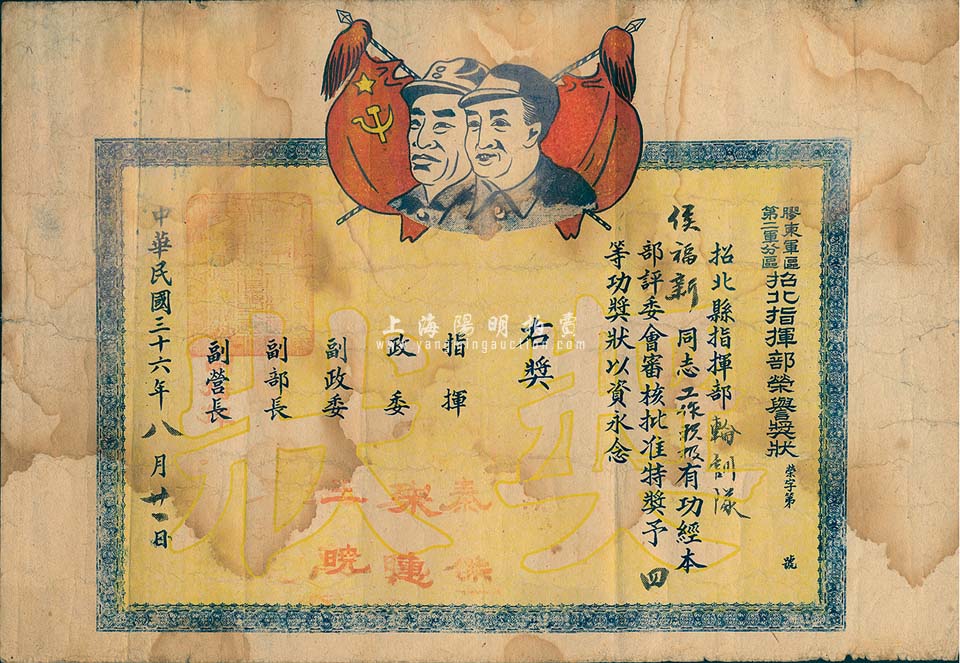 膠東軍區
第二軍分區
招北指揮部榮譽獎狀
榮字第 號
招北縣指揮部輪訓隊
侯福新同志工作积极有功經本
部評委會審核批准特獎予四
等功獎狀以資永念
右獎
指揮
政委
副政委
副部長
副營長
中華民國三十六年八月廿一日
獎狀
上海陽明拍賣
www.yangmingauction.com